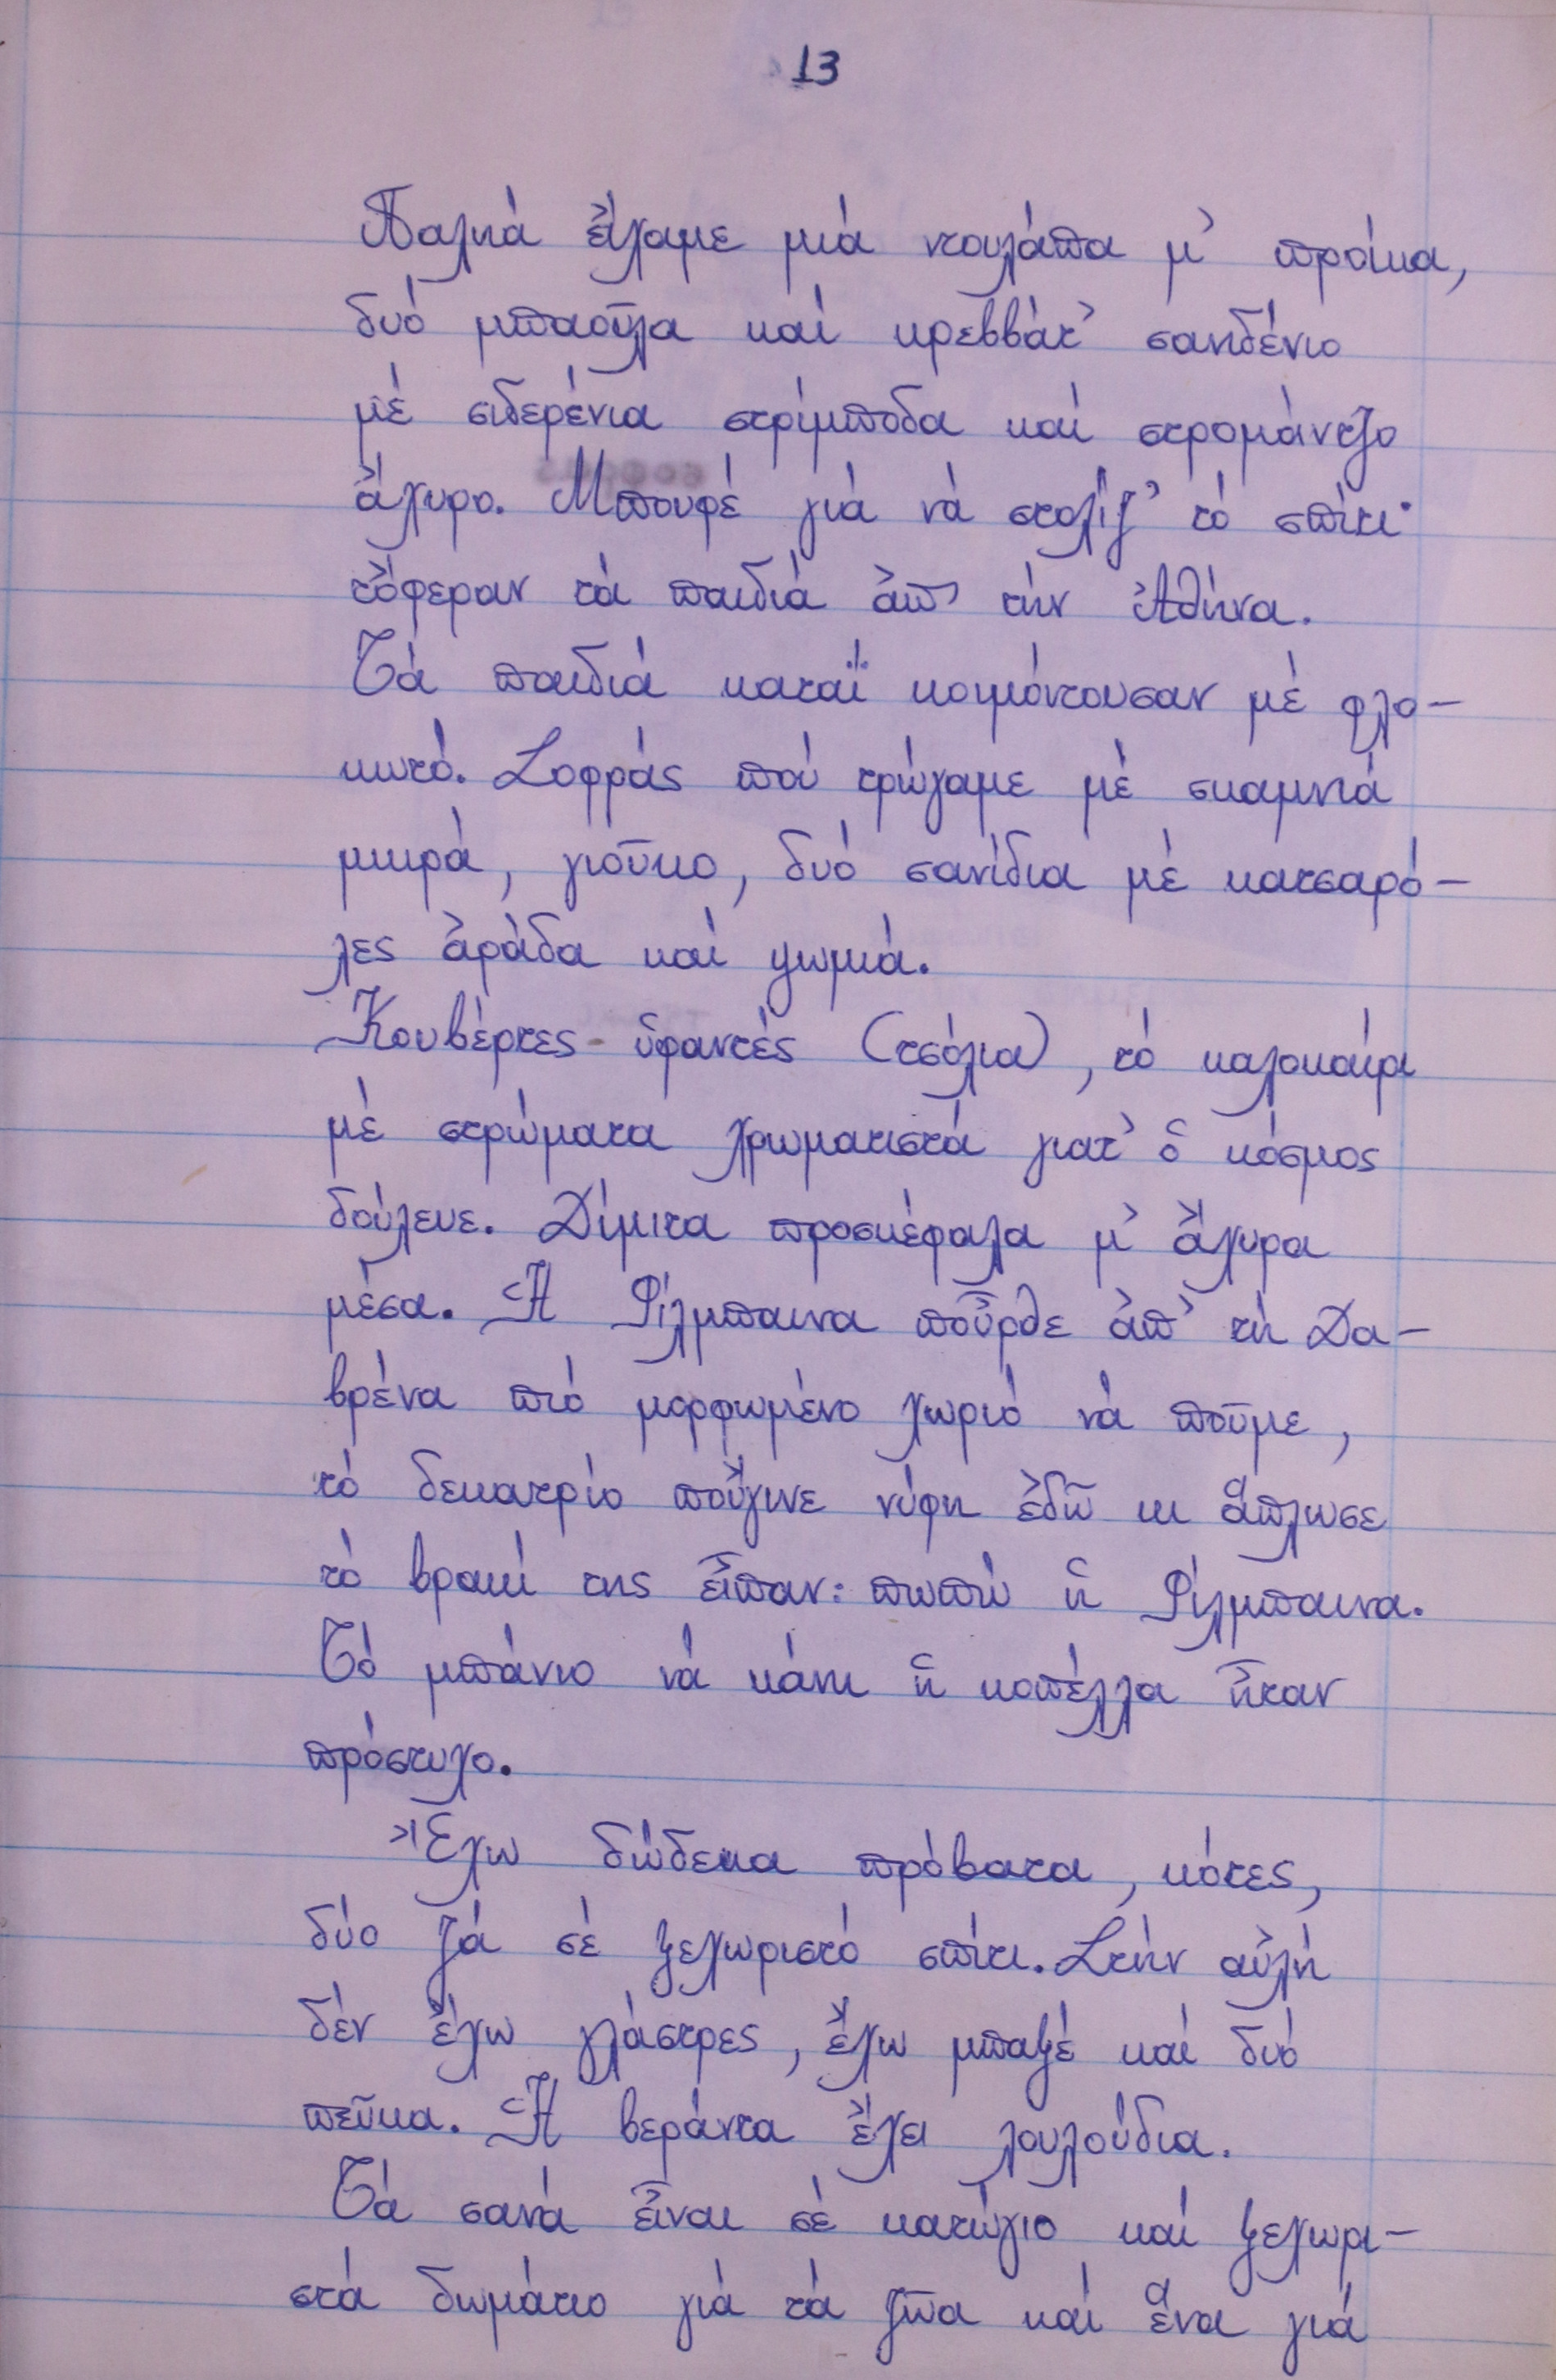 13
Παληά εἴχαμε μιά ντουλάπα μ' προίκα,
δυό μπαοῦλα καί κρεββάτ' σανιδένιο
μέ σιδερένια στρίμποδα καί στρομάντζο
ἄχυρο. Μπουφέ γιά νά στολίζ' τό σπίτι·
τὄφεραν τά παιδιά ἀπ' τήν Ἀθήνα.
Τά παιδιά καταΐ κοιμόντουσαν μέ φλο-
κωτό. Σοφράς πού τρώγαμε μέ σκαμνιά
μικρά, γιοῦκο, δυό σανίδια μέ κατσαρό-
λες ἀράδα καί ψωμιά.
Κουβέρτες ὑφαντές (τσόλια), τό καλοκαίρι
μέ στρώματα χρωματιστά γιατ' ὁ κόσμος
δούλευε. Δίμιτα προσκέφαλα μ' ἄχυρα
μέσα. Ἡ Φίλμπαινα ποὖρθε ἀπ' τή Δα-
βρένα πιό μορφωμένο χωριό νά ποῦμε,
τό δεκατρίο ποὔγινε νύφη ἐδῶ κι ἅπλωσε
τό βρακί της εἶπαν: πωπώ ἡ Φίλμπαινα.
Τό μπάνιο νά κάνη ἡ κοπέλλα ἦταν
πρόστυχο.
Ἔχω δώδεκα πρόβατα, κότες,
δύο ζά σέ ξεχωριστό σπίτι. Στήν αὐλή
δέν ἔχω γλάστρες, ἔχω μπαξέ καί δυό
πεῦκα. Ἡ βεράντα ἔχει λουλούδια.
Τά σανά εἶναι σέ κατώγιο καί ξεχωρι-
στά δωμάτιο γιά τά ζῶα καί ἕνα γιά